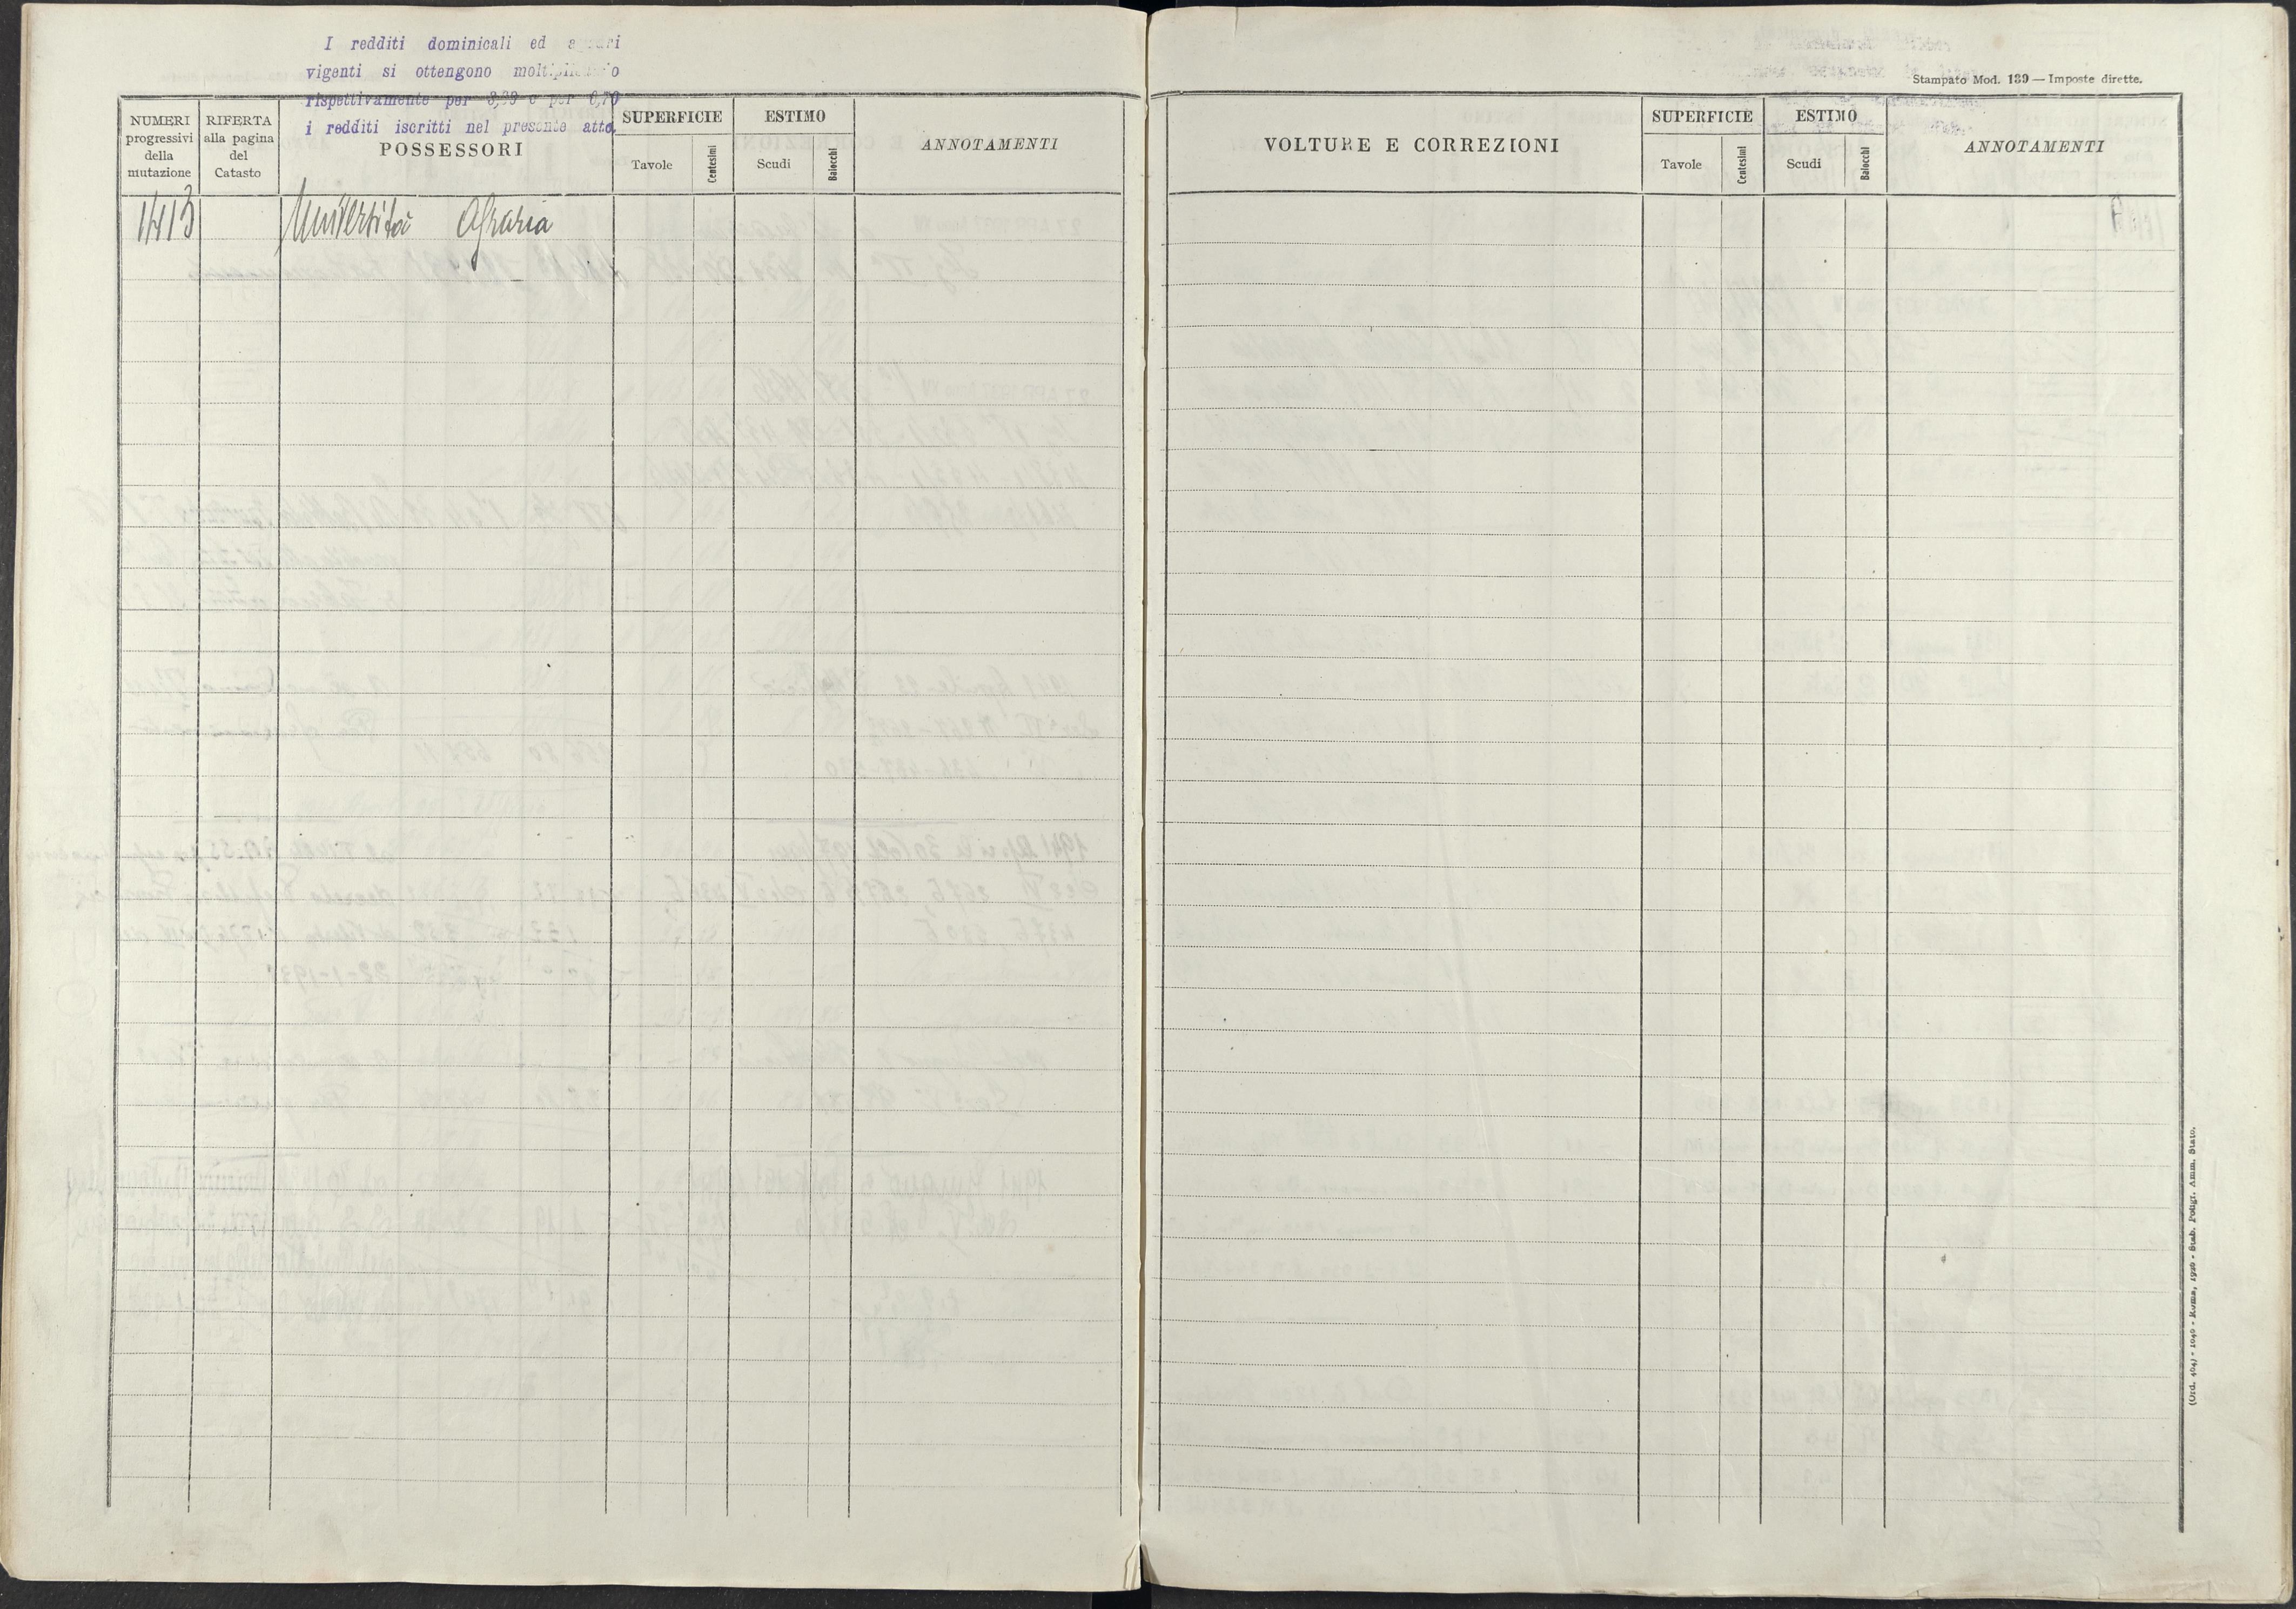 I redditi dominicali ed agrari
vigenti si ottengono moltiplicando
rispettivamente per 3,33 e per 6,70
i redditi iscritti nel presente atto.
NUMERI progressivi della mutazione
RIFERTA alla pagina del Catasto
POSSESSORI
SUPERFICIE
Tavole
Centesimi
ESTIMO
Scudi
Baiocchi
ANNOTAMENTI
1413
Università Agraria
Stampato Mod. 139 — Imposte dirette.
VOLTURE E CORREZIONI
SUPERFICIE
Tavole
Centesimi
ESTIMO
Scudi
Baiocchi
ANNOTAMENTI
(Ord. 404) - 1040 - Roma, 1926 - Stab. Poligr. Amm. Stato.